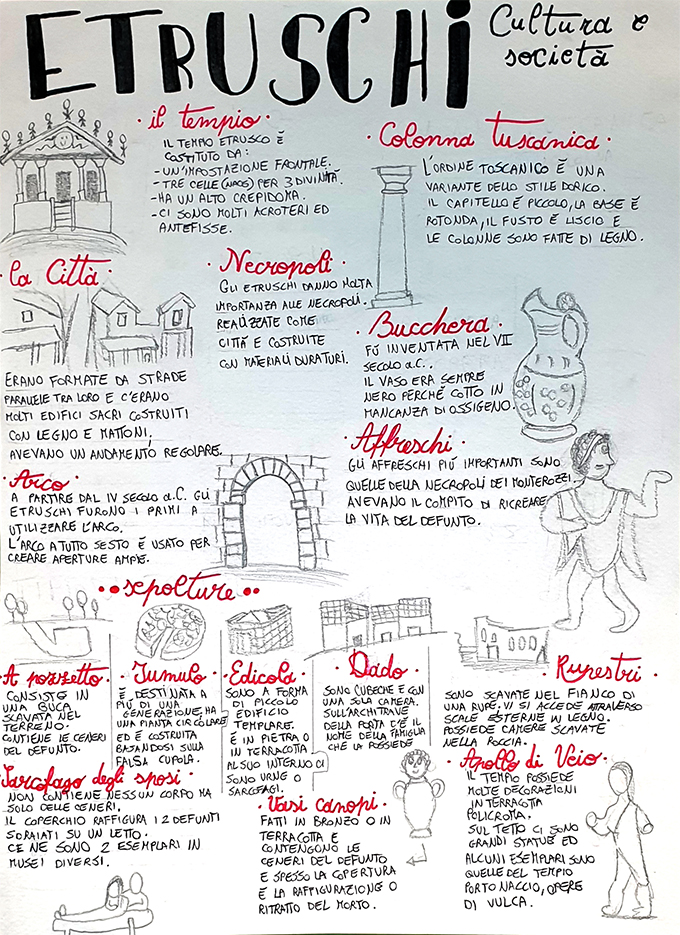 ETRUSCHI
Cultura e
società
·il tempio·
IL TEMPIO ETRUSCO È
COSTITUTO DA:
-UN'IMPOSTAZIONE FRONTALE.
-TRE CELLE(NAOS) PER 3 DIVINITÀ.
-HA UN ALTO CREPIDOMA.
-CI SONO MOLTI ACROTERI ED
ANTEFISSE.
·Colonna tuscanica·
L'ORDINE TOSCANICO È UNA
VARIANTE DELLO STILE DORICO.
IL CAPITELLO È PICCOLO, LA BASE È
ROTONDA, IL FUSTO È LISCIO E
LE COLONNE SONO FATTE DI LEGNO.
·la Città·
ERANO FORMATE DA STRADE
PARALLELE TRA LORO E C'ERANO
MOLTI EDIFICI SACRI COSTRUITI
CON LEGNO E MATTONI,
AVEVANO UN ANDAMENTO REGOLARE.
·Necropoli·
GLI ETRUSCHI DANNO MOLTA
IMPORTANZA ALLE NECROPOLI.
REALIZZATE COME
CITTÀ E COSTRUITE
CON MATERIALI DURATURI.
·Bucchera·
FÙ INVENTATA NEL VII
SECOLO a.C..
IL VASO ERA SEMPRE
NERO PERCHÉ COTTO IN
MANCANZA DI OSSIGENO.
·Affreschi·
GLI AFFRESCHI PIÙ IMPORTANTI SONO
QUELLE DELLA NECROPOLI DEI MONTEROZZI.
AVEVANO IL COMPITO DI RICREARE
LA VITA DEL DEFUNTO.
·Arco·
A PARTIRE DAL IV SECOLO a.C. GLI
ETRUSCHI FURONO I PRIMI A
UTILIZZARE L'ARCO.
L'ARCO A TUTTO SESTO È USATO PER
CREARE APERTURE AMPIE.
••sepolture••
·A pozzetto·
CONSISTE IN
UNA BUCA
SCAVATA NEL
TERRENO.
CONTIENE LE CENERI
DEL DEFUNTO.
·Tumulo·
È DESTINATA A
PIÙ DI UNA
GENERAZIONE, HA
UNA PIANTA CIRCOLARE
ED È COSTRUITA
BASANDOSI SULLA
FALSA CUPOLA.
·Edicola·
SONO A FORMA
DI PICCOLO
EDIFICIO
TEMPLARE.
È IN PIETRA O
IN TERRACOTTA
AL SUO INTERNO CI
SONO URNE O
SARCOFAGI.
·Dado·
SONO CUBICHE E CON
UNA SOLA CAMERA.
SULL'ARCHITRAVE
DELLA PORTA C'È IL
NOME DELLA FAMIGLIA
CHE LA POSSIEDE
·Rupestri·
SONO SCAVATE NEL FIANCO DI
UNA RUPE. VI SI ACCEDE ATTRAVERSO
SCALE ESTERNE IN LEGNO.
POSSIEDE CAMERE SCAVATE
NELLA ROCCIA.
·Sarcofago degli sposi·
NON CONTIENE NESSUN CORPO MA
SOLO DELLE CENERI.
IL COPERCHIO RAFFIGURA I 2 DEFUNTI
SDRAIATI SU UN LETTO.
CE NE SONO 2 ESEMPLARI IN
MUSEI DIVERSI.
·Vasi canopi·
FATTI IN BRONZO O IN
TERRACOTTA E
CONTENGONO LE
CENERI DEL DEFUNTO
E SPESSO LA COPERTURA
È LA RAFFIGURAZIONE O
RITRATTO DEL MORTO.
·Apollo di Veio·
IL TEMPIO POSSIEDE
MOLTE DECORAZIONI
IN TERRACOTTA
POLICROMA.
SUL TETTO CI SONO
GRANDI STATUE ED
ALCUNI ESEMPLARI SONO
QUELLE DEL TEMPIO
PORTONACCIO, OPERE
DI VULCA.